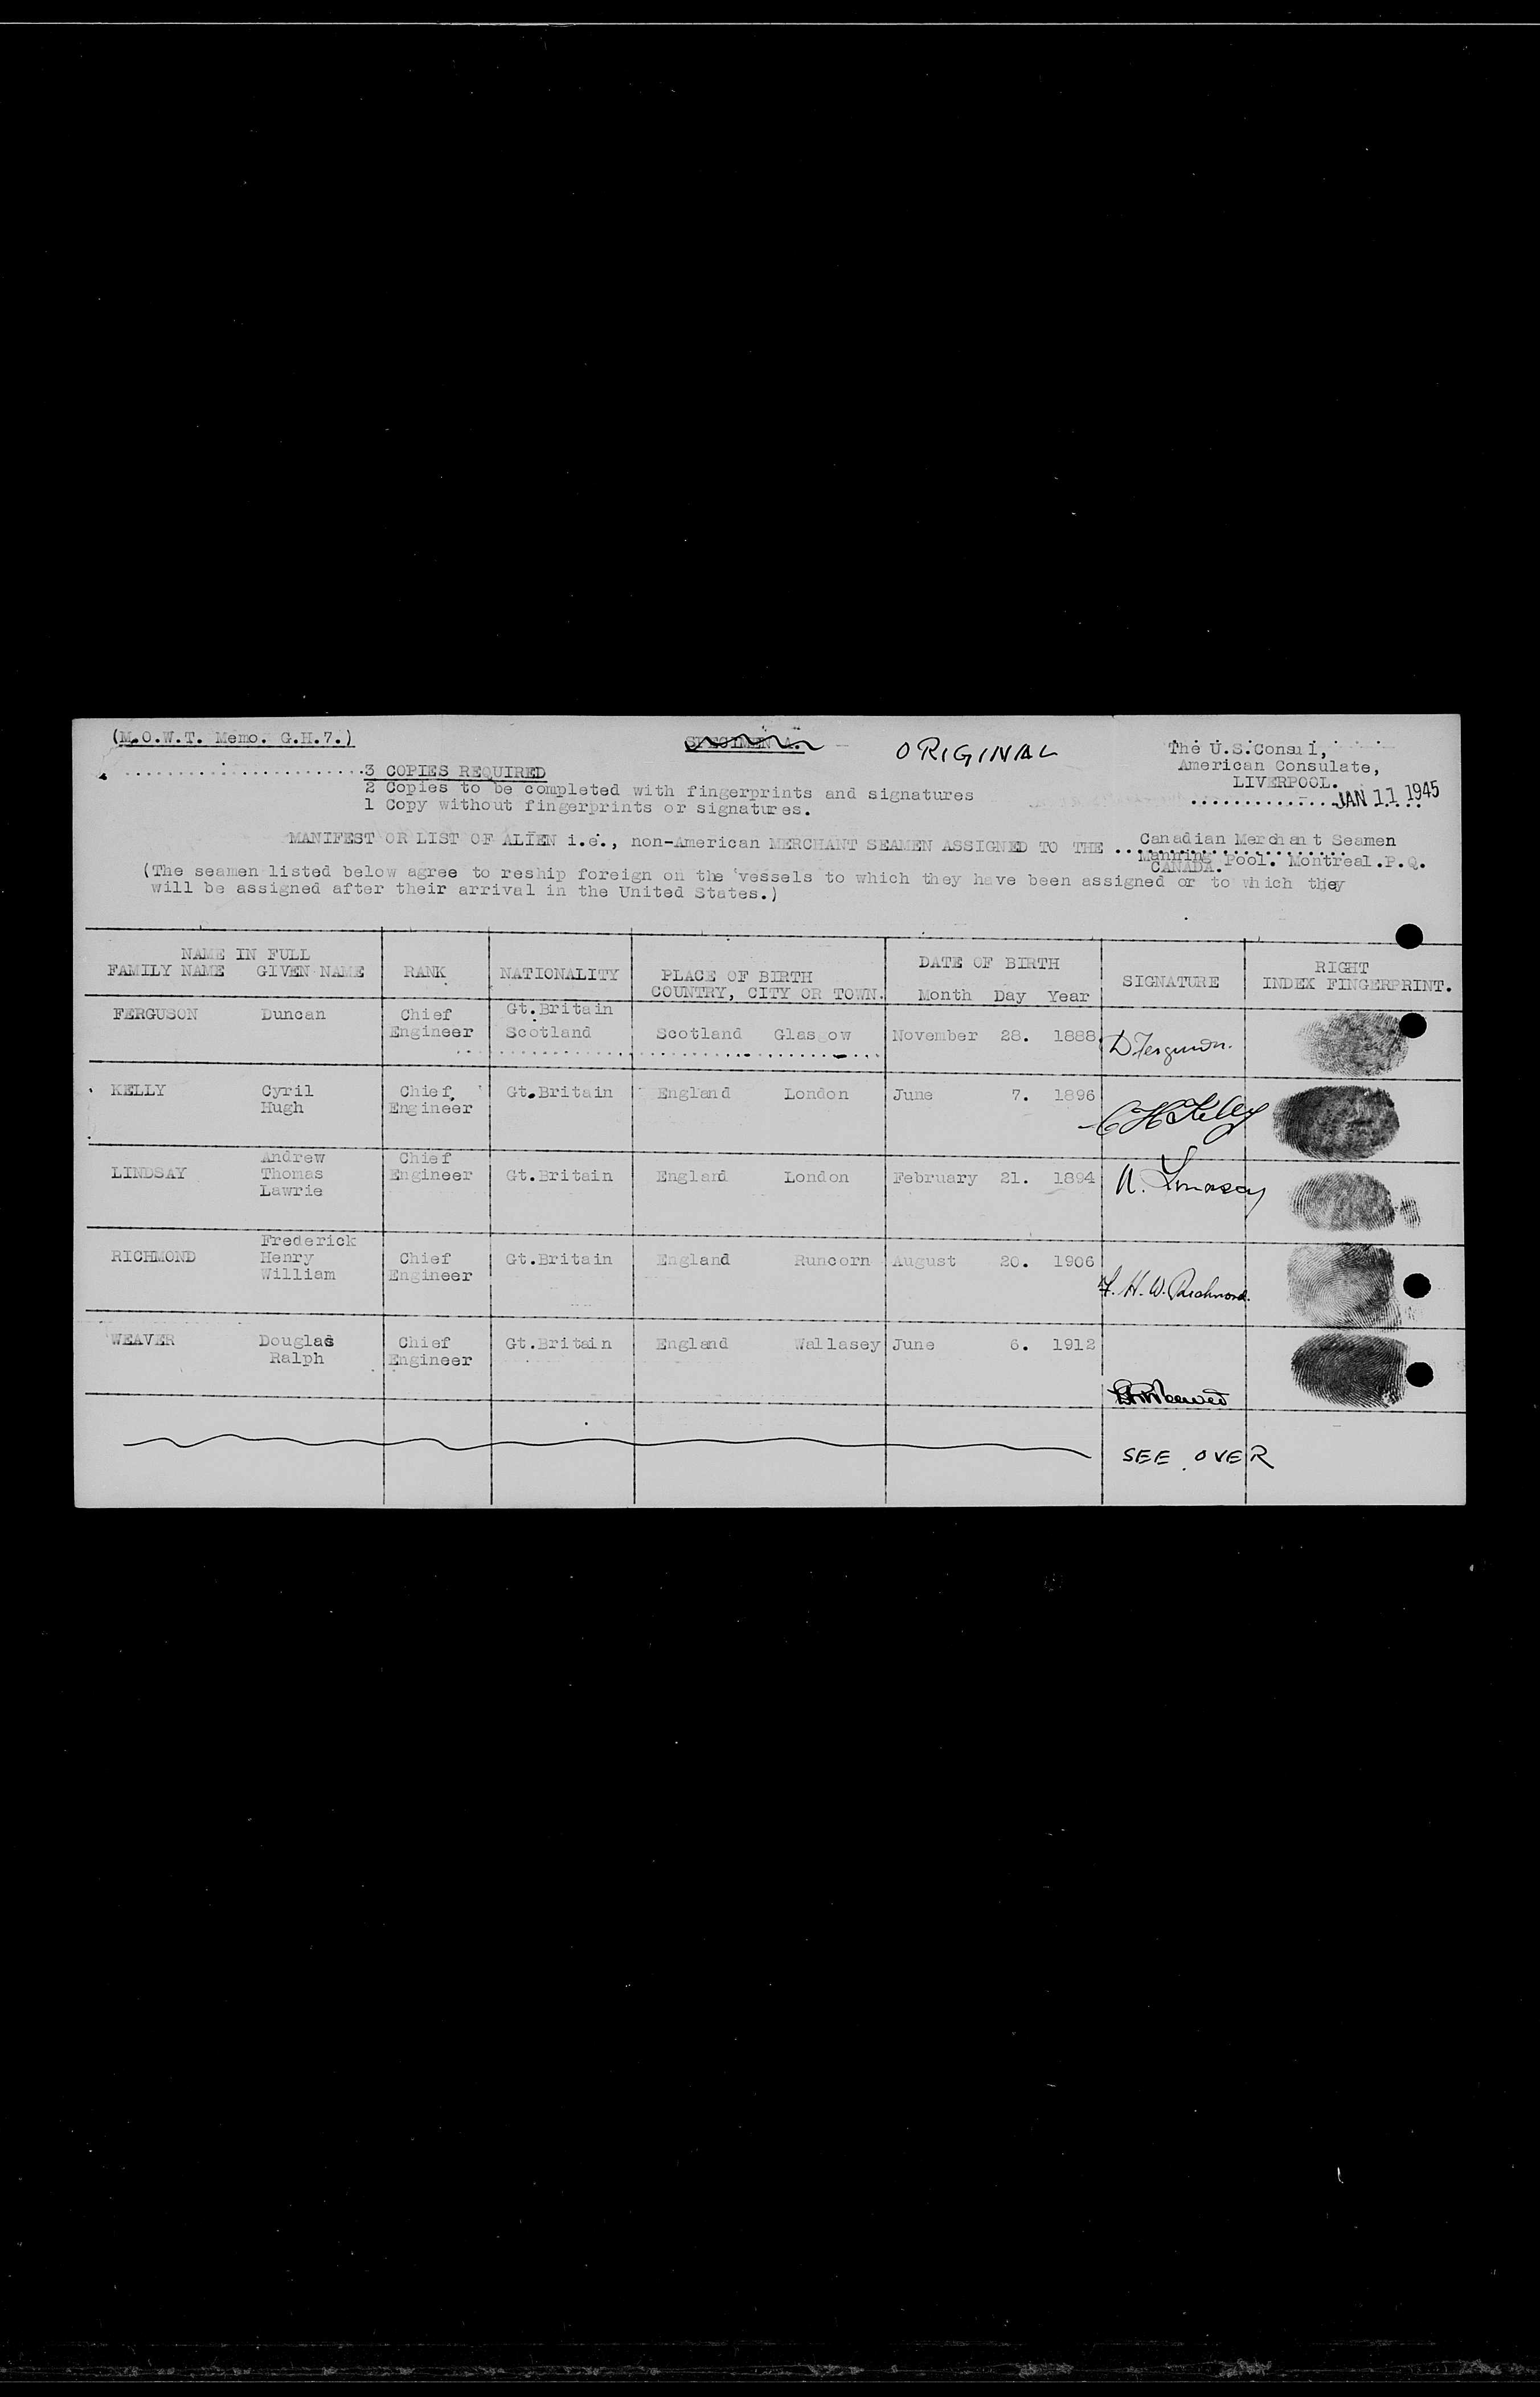 (M.O.W.T. Memo. G.H.7.)
SPECIMEN A.
ORIGINAL
The U.S.Consul,
American Consulate,
LIVERPOOL.
JAN 11 1945
3 COPIES REQUIRED
2 Copies to be completed with fingerprints and signatures
1 Copy without fingerprints or signatures.
MANIFEST OR LIST OF ALIEN i.e., non-American MERCHANT SEAMEN ASSIGNED TO THE Canadian Merchant Seamen
Manning Pool. Montreal.P.Q.
CANADA.
(The seamen listed below agree to reship foreign on the vessels to which they have been assigned or to which they
will be assigned after their arrival in the United States.)
NAME IN FULL
FAMILY NAME GIVEN NAME
RANK
NATIONALITY
PLACE OF BIRTH
COUNTRY, CITY OR TOWN.
DATE OF BIRTH
Month Day Year
SIGNATURE
RIGHT
INDEX FINGERPRINT.
FERGUSON Duncan
Chief
Engineer
Gt.Britain
Scotland
Scotland Glasgow
November 28. 1888
D. Ferguson.
KELLY
Cyril
Hugh
Chief
Engineer
Gt.Britain
England London
June 7. 1896
C H Kelly
LINDSAY
Andrew
Thomas
Lawrie
Chief
Engineer
Gt.Britain
England London
February 21. 1894
A. Lindsay
RICHMOND
Frederick
Henry
William
Chief
Engineer
Gt.Britain
England Runcorn
August 20. 1906
F. H. W. Richmond.
WEAVER
Douglas
Ralph
Chief
Engineer
Gt.Britain
England Wallasey
June 6. 1912
SEE OVER